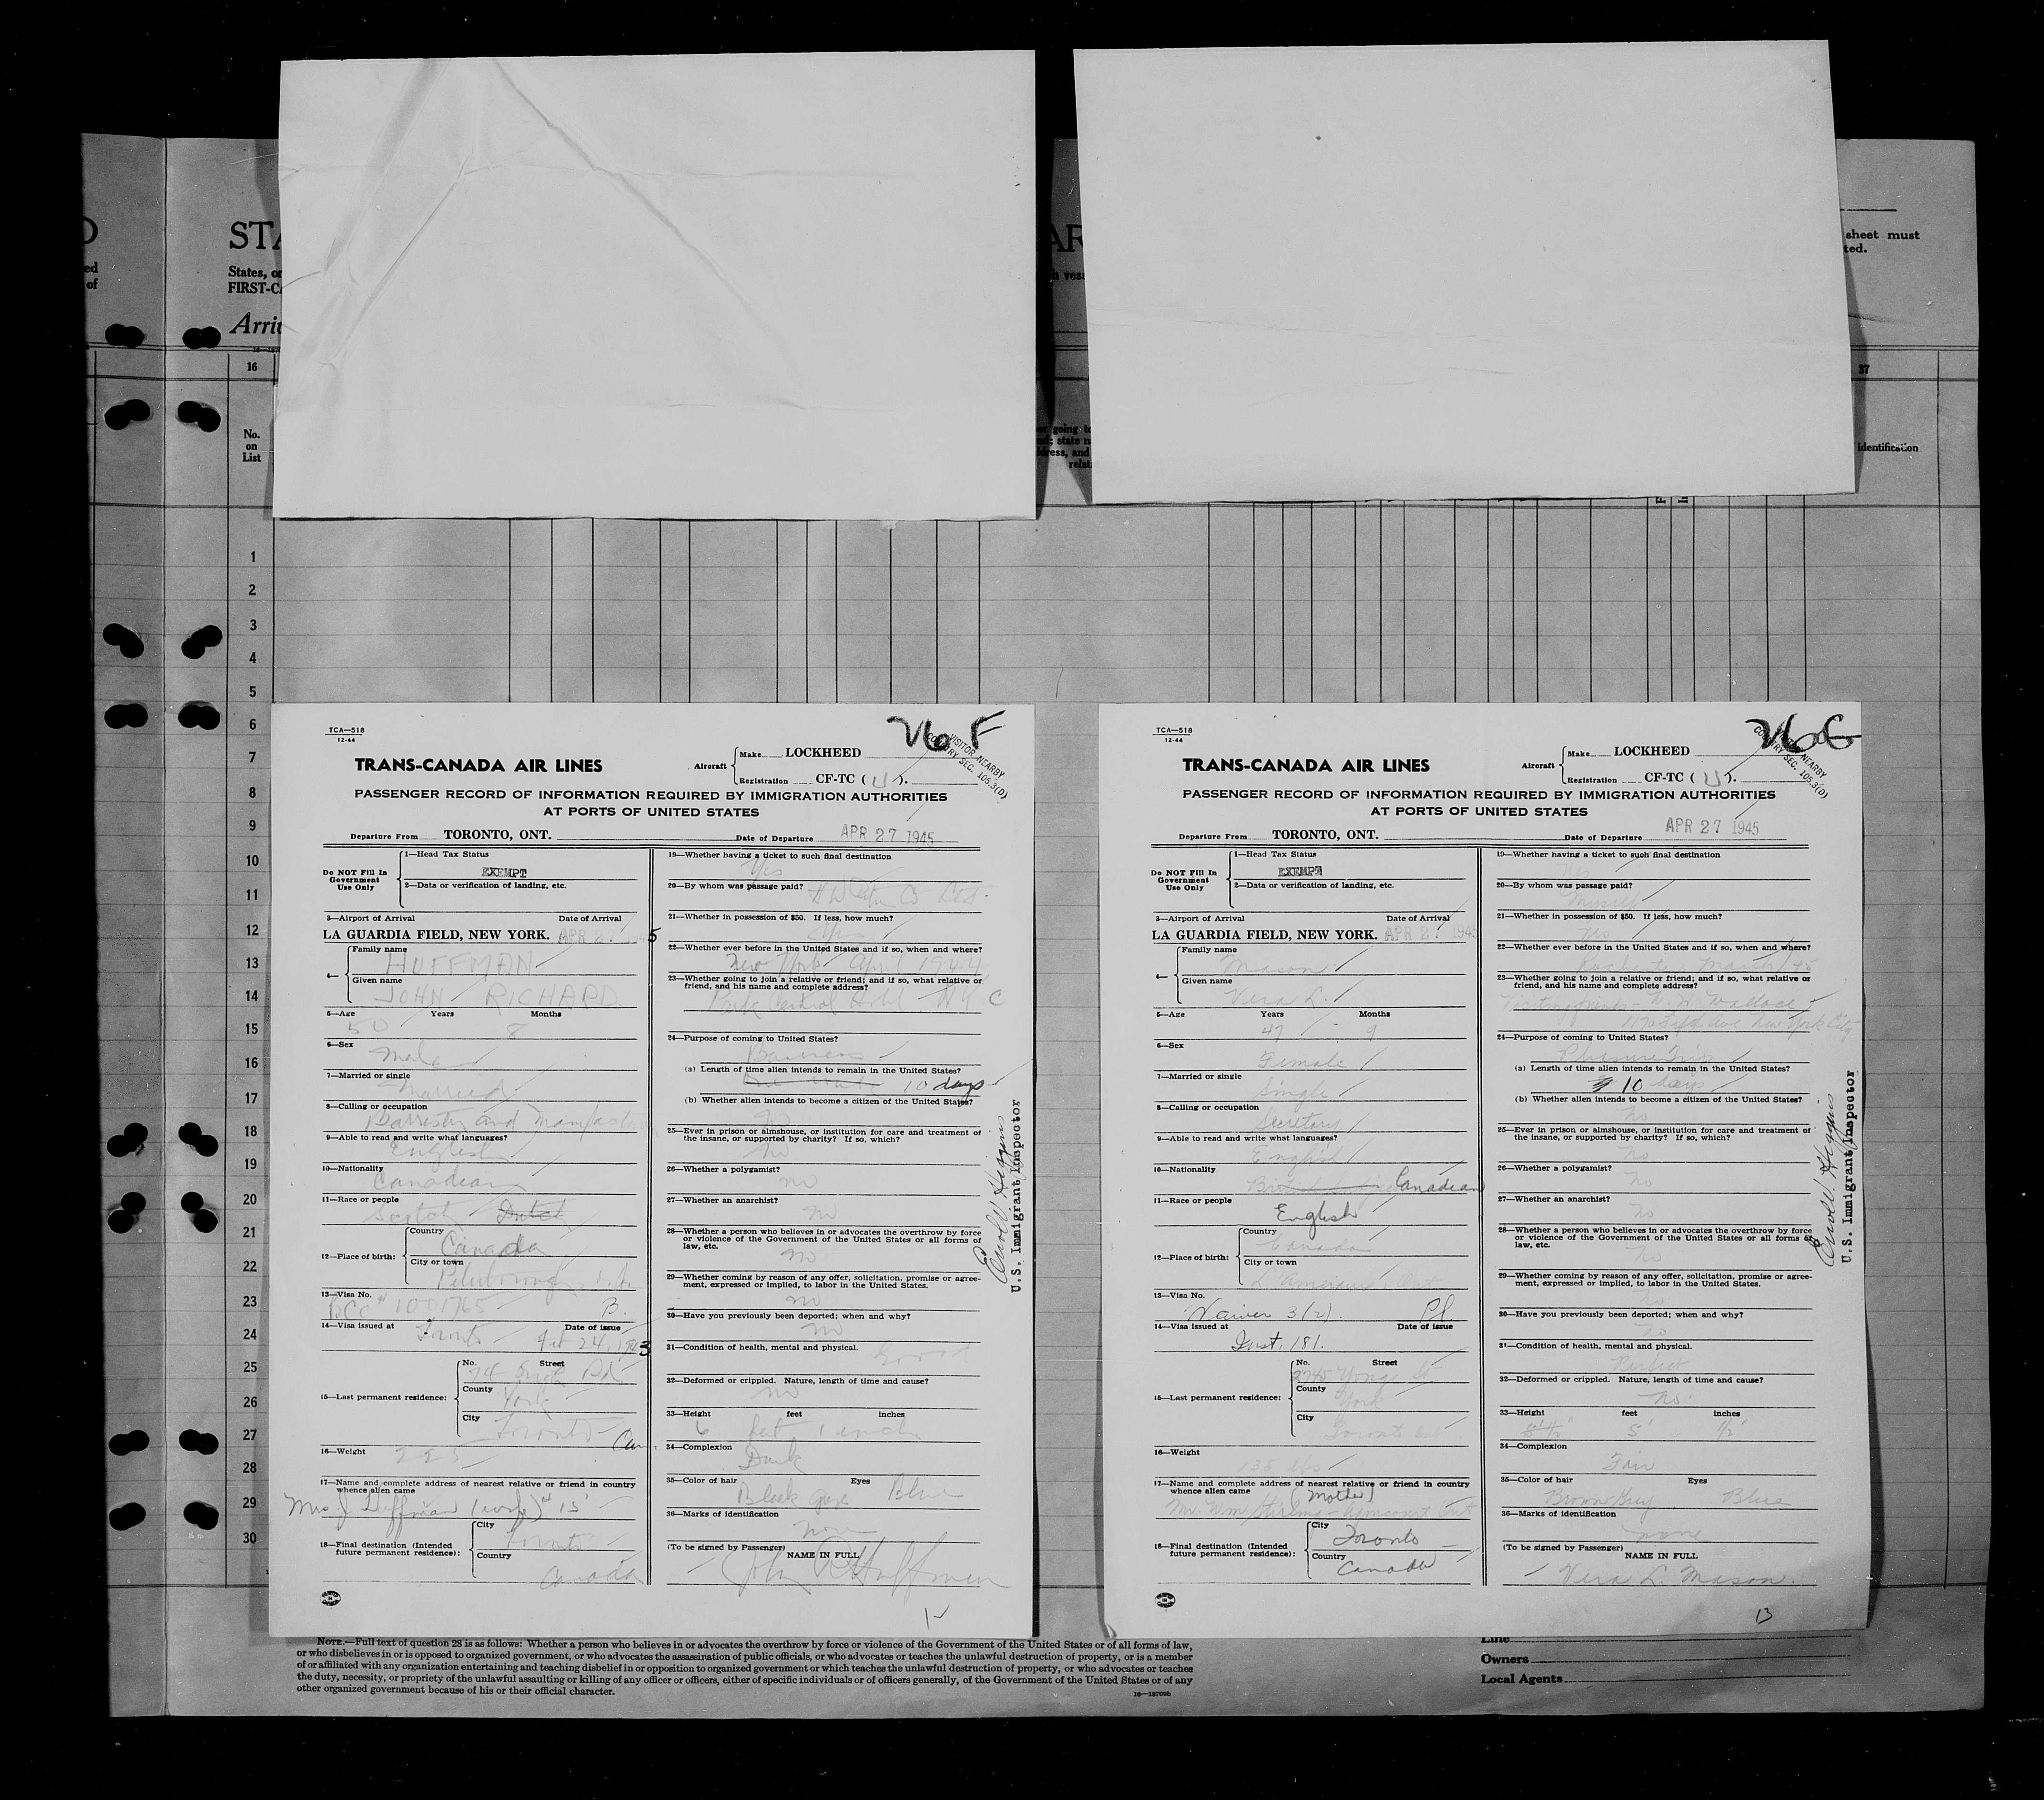 STA
States, or
FIRST-CA
sheet must
ted.
ed
of
16
37
No.
on
List
identification
1
2
3
4
5
6
7
8
9
10
11
12
13
14
15
16
17
18
19
20
21
22
23
24
25
26
27
28
29
30
TCA—518
12-44
V6 F
VISITOR NEARBY
COUNTRY SEC. 105.3(D)
TRANS-CANADA AIR LINES
Aircraft
Make LOCKHEED
Registration CF-TC (U).
PASSENGER RECORD OF INFORMATION REQUIRED BY IMMIGRATION AUTHORITIES
AT PORTS OF UNITED STATES
Departure From TORONTO, ONT. Date of Departure APR 27 1945
Do NOT Fill In
Government
Use Only
1—Head Tax Status
EXEMPT
2—Data or verification of landing, etc.
3—Airport of Arrival Date of Arrival
LA GUARDIA FIELD, NEW YORK. APR 27 1945
4— Family name
HUFFMAN
Given name
JOHN RICHARD
5—Age Years Months
50 8
6—Sex
Male
7—Married or single
Married
8—Calling or occupation
Barrister and
9—Able to read and write what languages?
English
10—Nationality
Canadian
11—Race or people
Scotch Dutch
12—Place of birth:
Country
Canada
City or town
Peterborough
13—Visa No.
BCC # 1001765 B.
14—Visa issued at Date of issue
Toronto 24, 1943
15—Last permanent residence:
No. Street
74
County
York
City
Toronto Can
16—Weight
225
17—Name and complete address of nearest relative or friend in country
whence alien came
Mrs. J. Huffman (wife) 15
18—Final destination (Intended
future permanent residence):
City
Toronto
Country
Canada
19—Whether having a ticket to such final destination
Yes
20—By whom was passage paid?
21—Whether in possession of $50. If less, how much?
Yes
22—Whether ever before in the United States and if so, when and where?
New York April 1944
23—Whether going to join a relative or friend; and if so, what relative or
friend, and his name and complete address?
Park Central Hotel N Y C
24—Purpose of coming to United States?
Business
(a) Length of time alien intends to remain in the United States?
10 days
(b) Whether alien intends to become a citizen of the United States?
No
25—Ever in prison or almshouse, or institution for care and treatment of
the insane, or supported by charity? If so, which?
No
26—Whether a polygamist?
No
27—Whether an anarchist?
No
28—Whether a person who believes in or advocates the overthrow by force
or violence of the Government of the United States or all forms of
law, etc.
No
29—Whether coming by reason of any offer, solicitation, promise or agree-
ment, expressed or implied, to labor in the United States.
No
30—Have you previously been deported; when and why?
No
31—Condition of health, mental and physical.
Good
32—Deformed or crippled. Nature, length of time and cause?
No
33—Height feet inches
6 feet 1 inch
34—Complexion
Dark
35—Color of hair Eyes
Black Grey Blue
36—Marks of identification
None
(To be signed by Passenger)
NAME IN FULL
John R Huffman
U.S. Immigrant Inspector
TCA—518
12-44
V6 G
TRANS-CANADA AIR LINES
Aircraft
Make LOCKHEED
Registration CF-TC (U).
PASSENGER RECORD OF INFORMATION REQUIRED BY IMMIGRATION AUTHORITIES
AT PORTS OF UNITED STATES
Departure From TORONTO, ONT. Date of Departure APR 27 1945
Do NOT Fill In
Government
Use Only
1—Head Tax Status
EXEMPT
2—Data or verification of landing, etc.
3—Airport of Arrival Date of Arrival
LA GUARDIA FIELD, NEW YORK. APR 27 1945
4— Family name
Mason
Given name
Vera L.
5—Age Years Months
47 9
6—Sex
Female
7—Married or single
Single
8—Calling or occupation
Secretary
9—Able to read and write what languages?
English
10—Nationality
Canadian
11—Race or people
English
12—Place of birth:
Country
Canada
City or town
13—Visa No.
Waiver 3(2). Pl.
14—Visa issued at Date of issue
Inst. 181.
15—Last permanent residence:
No. Street
Yonge St
County
York
City
Toronto Ont
16—Weight
138 lbs
17—Name and complete address of nearest relative or friend in country
whence alien came (Mother)
18—Final destination (Intended
future permanent residence):
City
Toronto
Country
Canada
19—Whether having a ticket to such final destination
Yes
20—By whom was passage paid?
Myself
21—Whether in possession of $50. If less, how much?
Yes
22—Whether ever before in the United States and if so, when and where?
23—Whether going to join a relative or friend; and if so, what relative or
friend, and his name and complete address?
Visiting friends - Wallace
Fifth Ave New York City
24—Purpose of coming to United States?
Pleasure Trip
(a) Length of time alien intends to remain in the United States?
10 days
(b) Whether alien intends to become a citizen of the United States?
No
25—Ever in prison or almshouse, or institution for care and treatment of
the insane, or supported by charity? If so, which?
No
26—Whether a polygamist?
No
27—Whether an anarchist?
No
28—Whether a person who believes in or advocates the overthrow by force
or violence of the Government of the United States or all forms of
law, etc.
No
29—Whether coming by reason of any offer, solicitation, promise or agree-
ment, expressed or implied, to labor in the United States.
No
30—Have you previously been deported; when and why?
No
31—Condition of health, mental and physical.
Perfect
32—Deformed or crippled. Nature, length of time and cause?
No
33—Height feet inches
5' 1/2"
34—Complexion
Fair
35—Color of hair Eyes
Brown Grey Blue
36—Marks of identification
None
(To be signed by Passenger)
NAME IN FULL
Vera L. Mason.
13
U.S. Immigrant Inspector
NOTE.—Full text of question 28 is as follows: Whether a person who believes in or advocates the overthrow by force or violence of the Government of the United States or of all forms of law,
or who disbelieves in or is opposed to organized government, or who advocates the assassination of public officials, or who advocates or teaches the unlawful destruction of property, or is a member
of or affiliated with any organization entertaining and teaching disbelief in or opposition to organized government or which teaches the unlawful destruction of property, or who advocates or teaches
the duty, necessity, or propriety of the unlawful assaulting or killing of any officer or officers, either of specific individuals or of officers generally, of the Government of the United States or of any
other organized government because of his or their official character.
Line
Owners
Local Agents